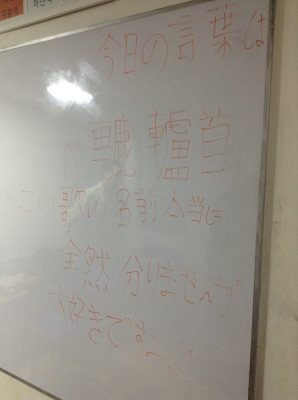 今日の言葉は
轆轤首
この歌の名前本当に
全然分りませんが
大好きです〜